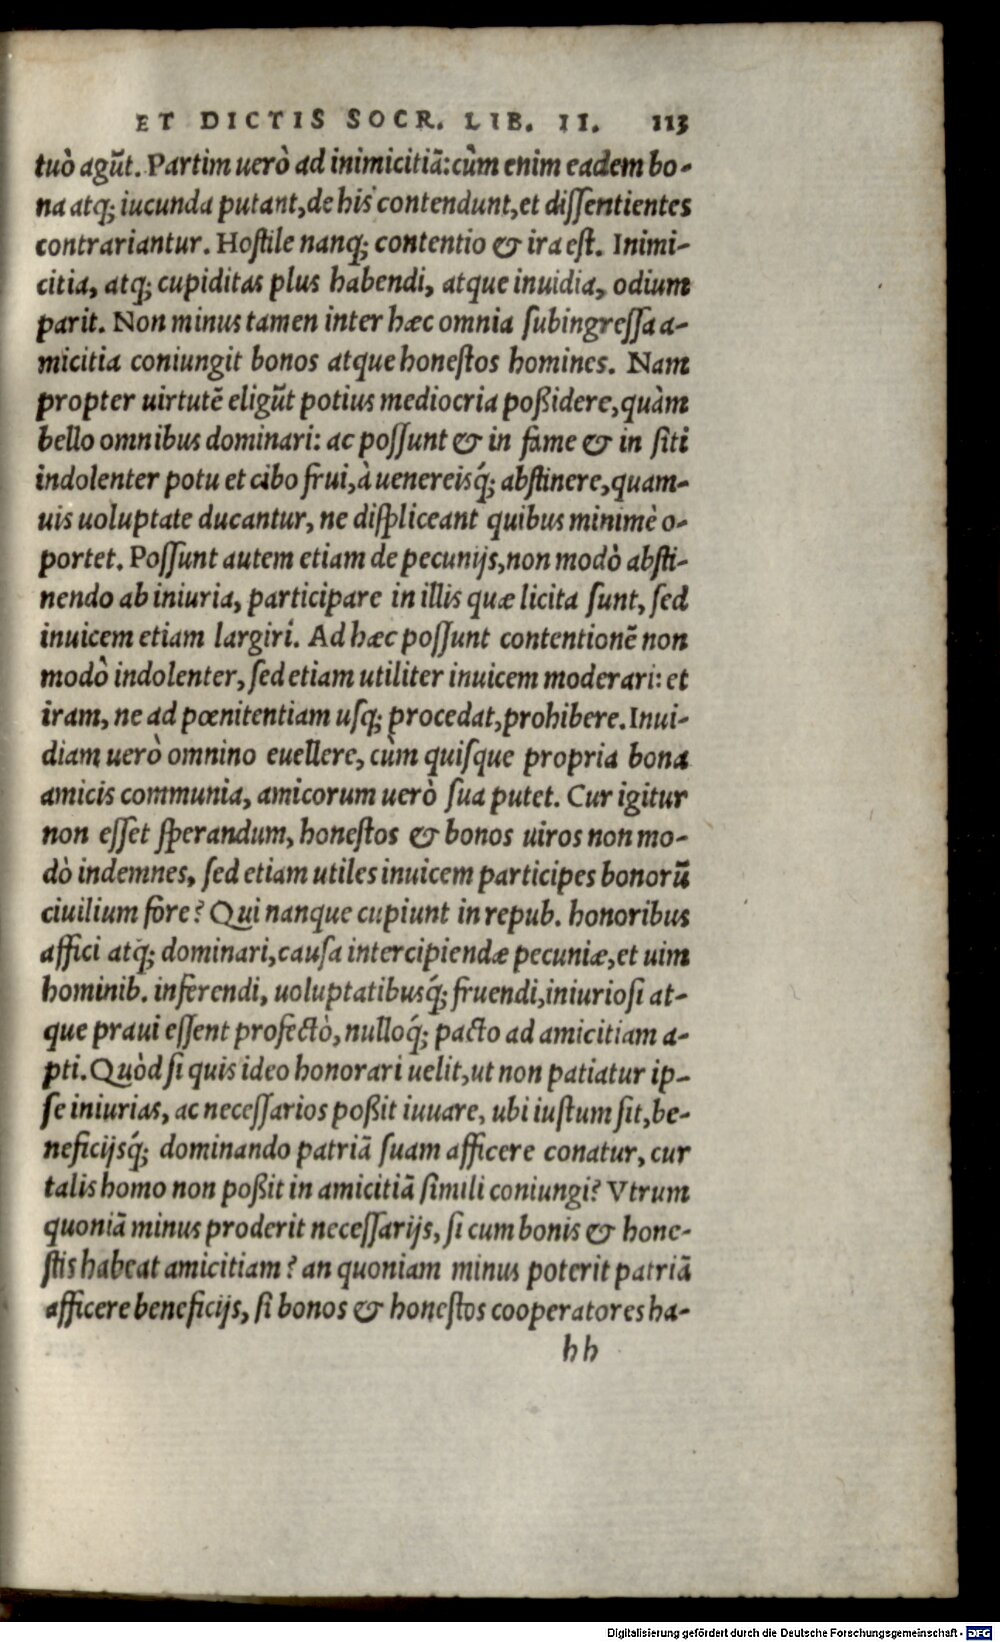 ET DICTIS SOCR. LIB. II. 113
tuò agūt. Partim uerò ad inimicitiā: cùm enim eadem bo-
na atq; iucunda putant, de his contendunt, et dissentientes
contrariantur. Hostile nanq; contentio & ira est. Inimi-
citia, atq; cupiditas plus habendi, atque inuidia, odium
parit. Non minus tamen inter hæc omnia subingressa a-
micitia coniungit bonos atque honestos homines. Nam
propter uirtutē eligūt potius mediocria poßidere, quàm
bello omnibus dominari: ac possunt & in fame & in siti
indolenter potu et cibo frui, à uenereisq́; abstinere, quam-
uis uoluptate ducantur, ne displiceant quibus minimè o-
portet. Possunt autem etiam de pecunijs, non modò absti-
nendo ab iniuria, participare in illis quæ licita sunt, sed
inuicem etiam largiri. Ad hæc possunt contentionē non
modò indolenter, sed etiam utiliter inuicem moderari: et
iram, ne ad pœnitentiam usq; procedat, prohibere. Inui-
diam uerò omnino euellere, cùm quisque propria bona
amicis communia, amicorum uerò sua putet. Cur igitur
non esset sperandum, honestos & bonos uiros non mo-
dò indemnes, sed etiam utiles inuicem participes bonorū
ciuilium fore? Qui nanque cupiunt in repub. honoribus
affici atq; dominari, causa intercipiendæ pecuniæ, et uim
hominib. inferendi, uoluptatibusq́; fruendi, iniuriosi at-
que praui essent profectò, nulloq́; pacto ad amicitiam a-
pti. Quòd si quis ideo honorari uelit, ut non patiatur ip-
se iniurias, ac necessarios poßit iuuare, ubi iustum sit, be-
neficijsq́; dominando patriā suam afficere conatur, cur
talis homo non poßit in amicitiā simili coniungi? Vtrum
quoniā minus proderit necessarijs, si cum bonis & hone-
stis habeat amicitiam? an quoniam minus poterit patriā
afficere beneficijs, si bonos & honestos cooperatores ha-
hh
Digitalisierung gefördert durch die Deutsche Forschungsgemeinschaft - DFG